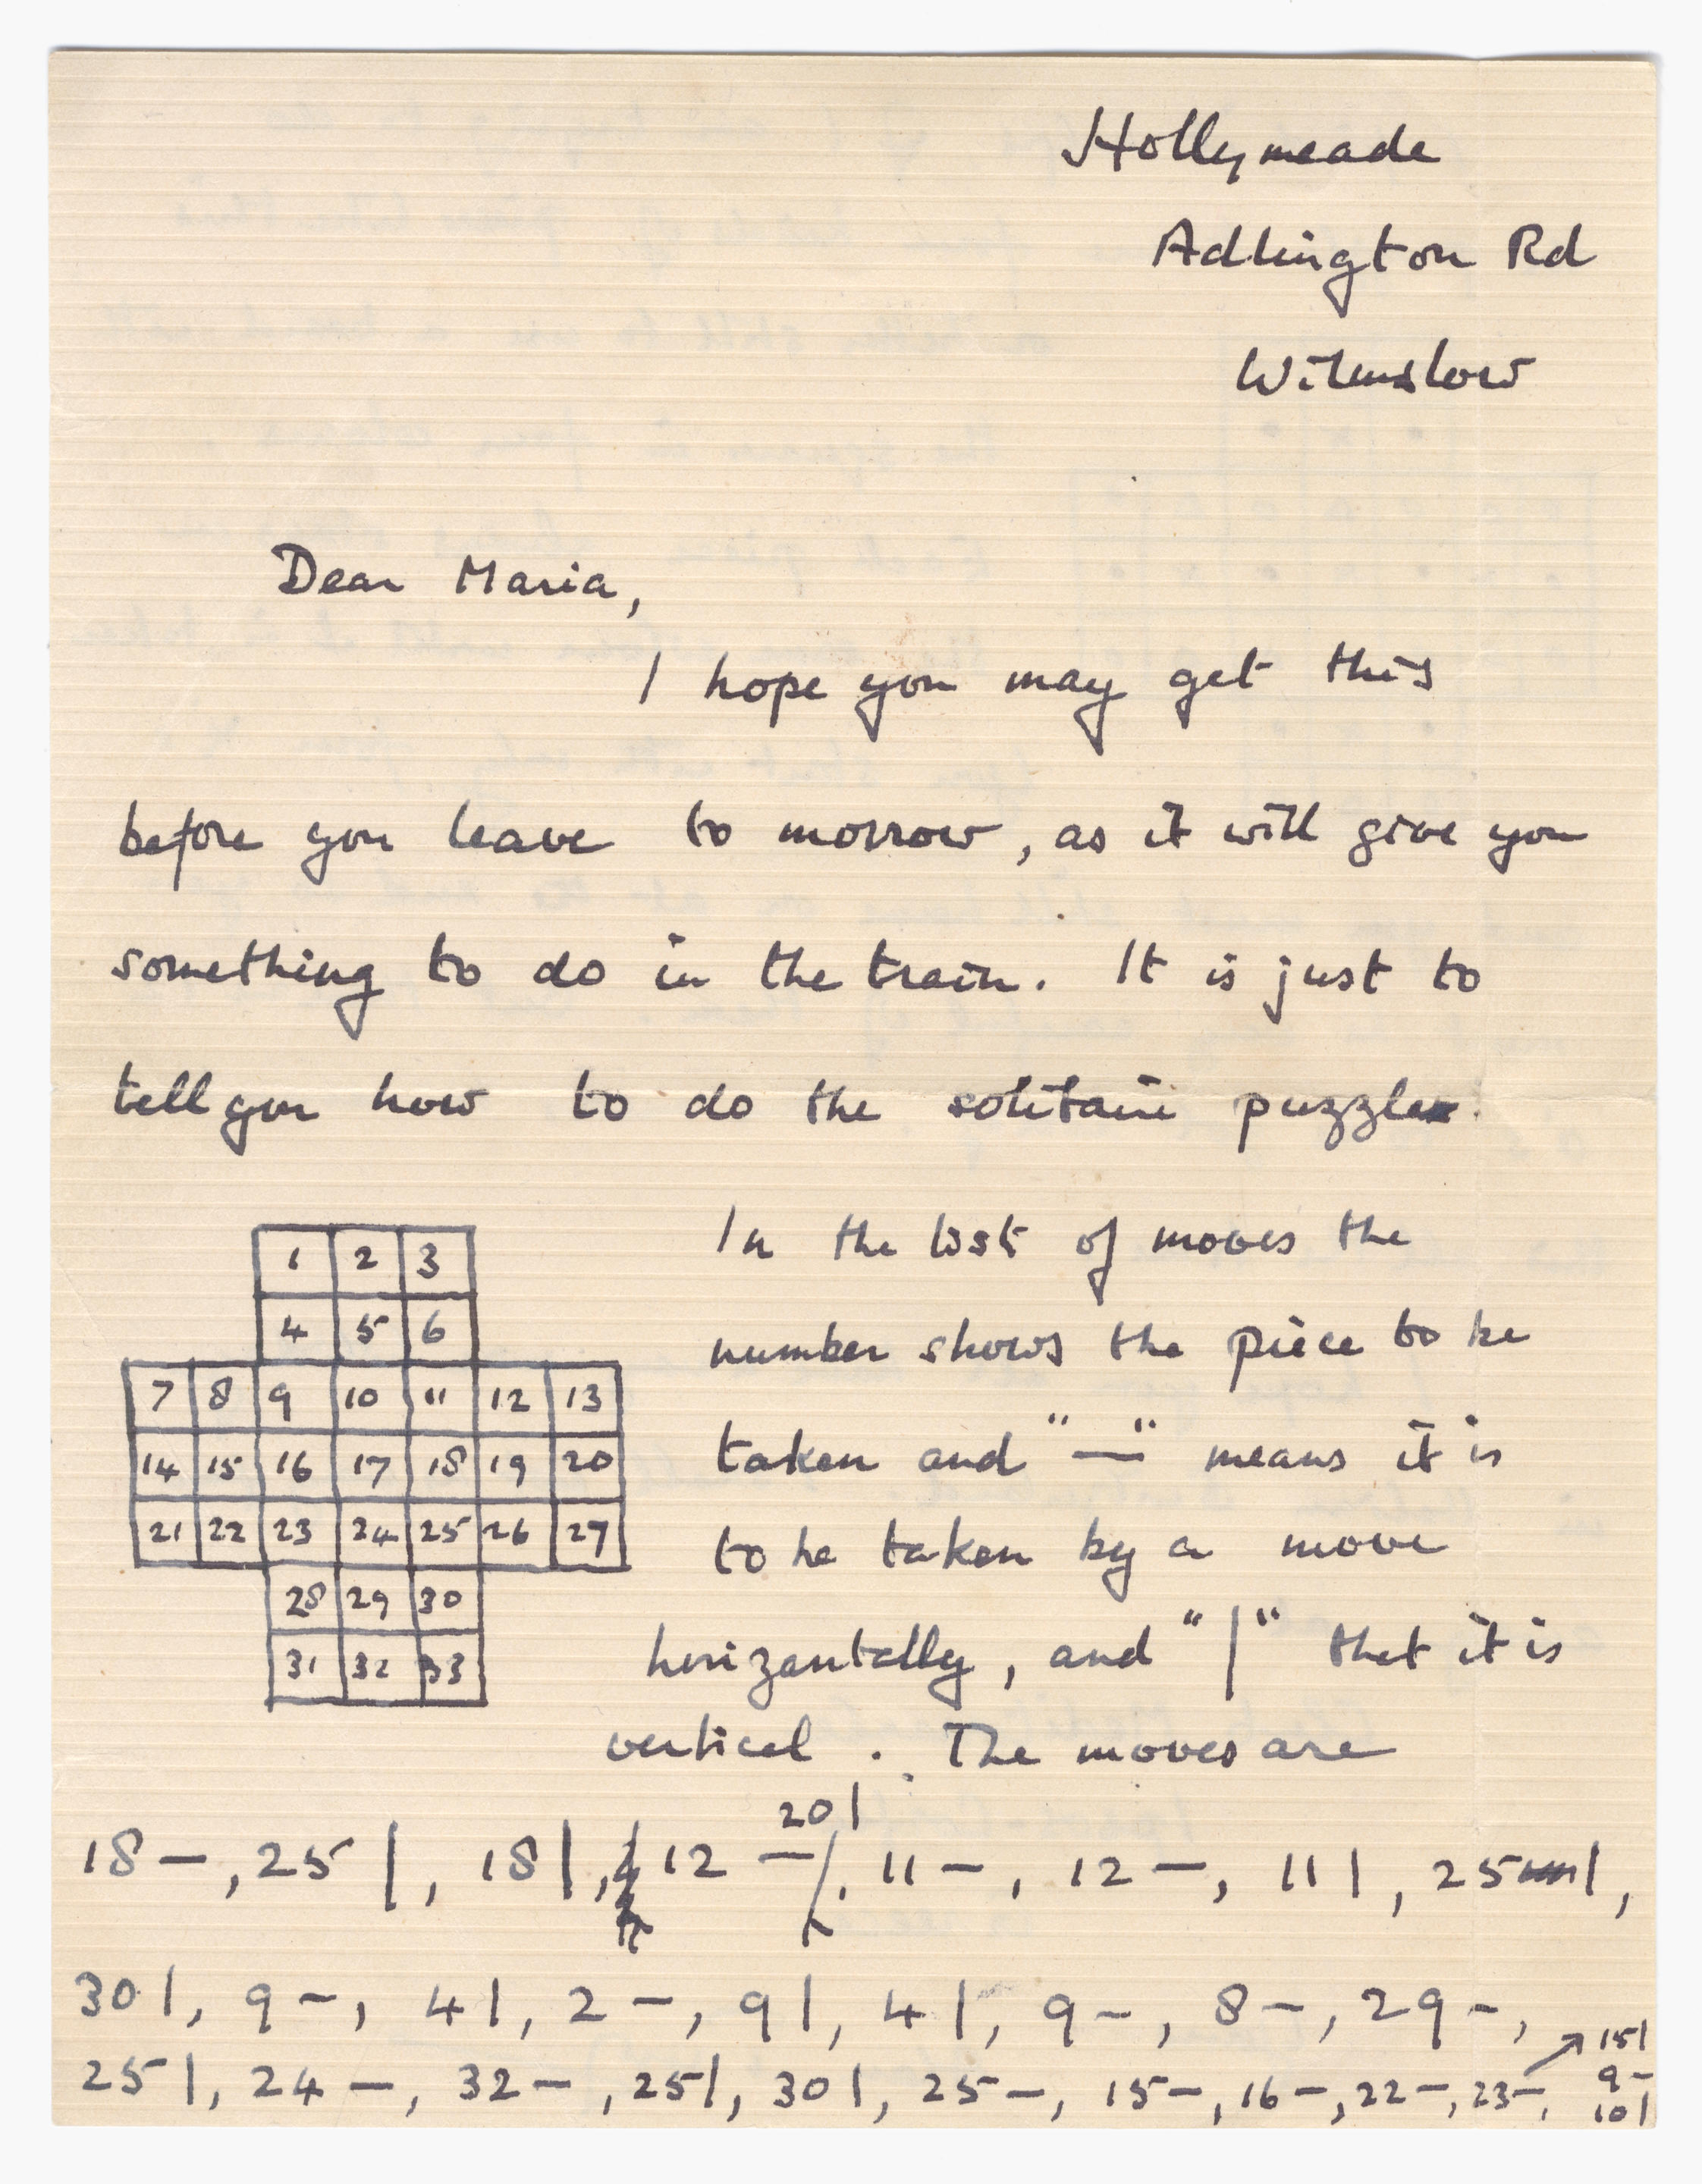 Hollymeade
Adlington Rd
Wilmslow
Dear Maria,
I hope you may get this
before you leave to morrow, as it will give you
something to do in the train. It is just to
tell you how to do the solitaire puzzle.
1 2 3
4 5 6
7 8 9 10 11 12 13
14 15 16 17 18 19 20
21 22 23 24 25 26 27
28 29 30
31 32 33
In the list of moves the
number shows the piece to be
taken and "—" means it is
to be taken by a move
horizantally, and "|" that it is
vertical. The moves are
20|
18 —, 25 |, 18 |, 12 —, 11 —, 12 —, 11 |, 25 |,
30 |, 9 —, 4 |, 2 —, 9 |, 4 |, 9 —, 8 —, 29 —,
25 |, 24 —, 32 —, 25 |, 30 |, 25 —, 15 —, 16 —, 22 —, 23 —,
15 |
9 —
10 |